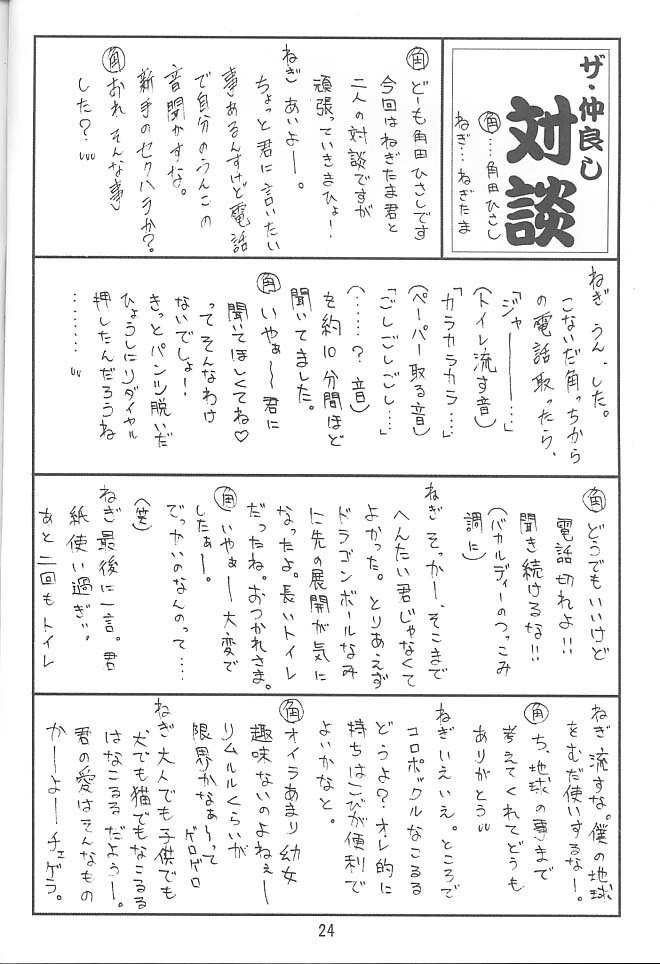 ザ・仲良し
対談
角‥‥角田ひさし
ねぎ‥ねぎたま
角 どーも角田ひさしです
今回はねぎたま君と
二人の対談ですが
頑張っていきまひょ!
ねぎ あいよー。
ちょっと君に言いたい
事あるんすけど電話
で自分のうんこの
音聞かすな。
新手のセクハラか?
角 おれそんな事
した?
ねぎ うん、した。
こないだ角っちから
の電話取ったら、
「ジャー―――‥‥」
(トイレ流す音)
「カラカラカラ‥‥」
(ペーパー取る音)
「ごしごしごし‥‥」
(‥‥‥?音)
を約10分間ほど
聞いてました。
角 いやぁ~君に
聞いてほしくてね♡
ってそんなわけ
ないでしょ!
きっとパンツ脱いだ
ひょうしにリダイヤル
押したんだろうね
‥‥‥‥
角 どうでもいいけど
電話切れよ!!
聞き続けるな!!
(バカルディーのつっこみ
調に)
ねぎ そっかー、そこまで
へんたい君じゃなくて
よかった。とりあえず
ドラゴンボールなみ
に先の展開が気に
なったよ。長いトイレ
だったね。おつかれさま。
角 いやぁー大変で
したぁー。
でっかいのなんのって‥‥
(笑)
ねぎ 最後に一言。君
紙使い過ぎ。
あと二回もトイレ
ねぎ 流すな。僕の地球
をむだ使いするなー。
角 ち、地球の事まで
考えてくれてどうも
ありがとう
ねぎ いえいえ。ところで
コロポックルなこるる
どうよ?オレ的に
持ちはこびが便利で
よいかなと。
角 オイラあまり幼女
趣味ないのよねぇー
リムルルくらいが
限界かなぁ~って
ゲロゲロ
ねぎ 大人でも子供でも
犬でも猫でもなこるる
はなこるるだよぅー。
君の愛はそんなもの
かーよーチェゲラ。
24